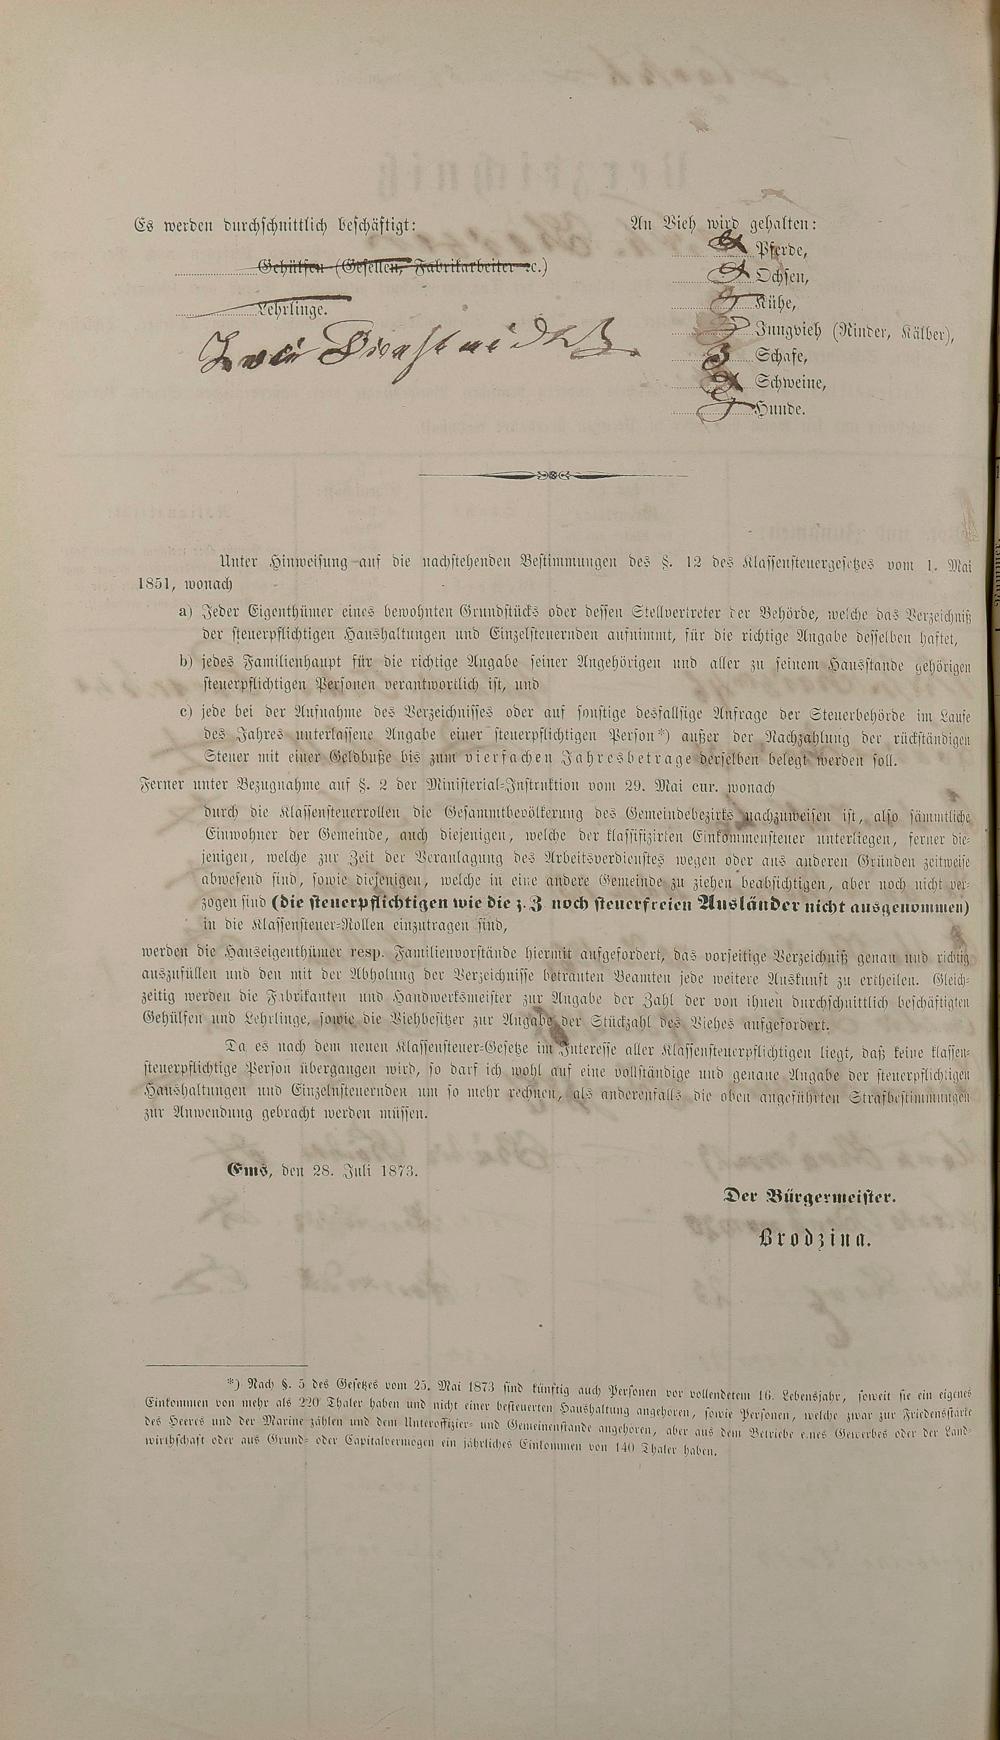 Es werden durchschnittlich beschäftigt:
Gehülfen (Gesellen, Fabrikarbeiter ꝛc.)
Lehrlinge.
Zwei
An Vieh wird gehalten:
Pferde,
Ochsen,
Kühe,
Jungvieh (Rinder, Kälber),
Schafe,
Schweine,
Hunde.
Unter Hinweisung auf die nachstehenden Bestimmungen des §. 12 des Klassensteuergesetzes vom 1. Mai
1851, wonach
a) Jeder Eigenthümer eines bewohnten Grundstücks oder dessen Stellvertreter der Behörde, welche das Verzeichniß
der steuerpflichtigen Haushaltungen und Einzelsteuernden aufnimmt, für die richtige Angabe desselben haftet,
b) jedes Familienhaupt für die richtige Angabe seiner Angehörigen und aller zu seinem Hausstande gehörigen
steuerpflichtigen Personen verantwortlich ist, und
c) jede bei der Aufnahme des Verzeichnisses oder auf sonstige desfallsige Anfrage der Steuerbehörde im Laufe
des Jahres unterlassene Angabe einer steuerpflichtigen Person*) außer der Nachzahlung der rückständigen
Steuer mit einer Geldbuße bis zum vierfachen Jahresbetrage derselben belegt werden soll.
Ferner unter Bezugnahme auf §. 2 der Ministerial-Instruktion vom 29. Mai cur. wonach
durch die Klassensteuerrollen die Gesammtbevölkerung des Gemeindebezirks nachzuweisen ist, also sämmtliche
Einwohner der Gemeinde, auch diejenigen, welche der klassifizirten Einkommensteuer unterliegen, ferner die-
jenigen, welche zur Zeit der Veranlagung des Arbeitsverdienstes wegen oder aus anderen Gründen zeitweise
abwesend sind, sowie diejenigen, welche in eine andere Gemeinde zu ziehen beabsichtigen, aber noch nicht ver-
zogen sind (die steuerpflichtigen wie die z. Z noch steuerfreien Ausländer nicht ausgenommen)
in die Klassensteuer-Rollen einzutragen sind,
werden die Hauseigenthümer resp. Familienvorstände hiermit aufgefordert, das vorseitige Verzeichniß genau und richtig
auszufüllen und den mit der Abholung der Verzeichnisse betrauten Beamten jede weitere Auskunft zu ertheilen. Gleich-
zeitig werden die Fabrikanten und Handwerksmeister zur Angabe der Zahl der von ihnen durchschnittlich beschäftigten
Gehülfen und Lehrlinge, sowie die Viehbesitzer zur Angabe der Stückzahl des Viehes aufgefordert.
Da es nach dem neuen Klassensteuer-Gesetze im Interesse aller Klassensteuerpflichtigen liegt, daß keine klassen-
steuerpflichtige Person übergangen wird, so darf ich wohl auf eine vollständige und genaue Angabe der steuerpflichtigen
Haushaltungen und Einzelnsteuernden um so mehr rechnen, als anderenfalls die oben angeführten Strafbestimmungen
zur Anwendung gebracht werden müssen.
Ems, den 28. Juli 1873.
Der Bürgermeister.
Brodzina.
*) Nach §. 5 des Gesetzes vom 25. Mai 1873 sind künftig auch Personen vor vollendetem 16. Lebensjahr, soweit sie ein eigenes
Einkommen von mehr als 220 Thaler haben und nicht einer besteuerten Haushaltung angehören, sowie Personen, welche zwar zur Friedensstärke
des Heeres und der Marine zählen und dem Unteroffizier- und Gemeinenstande angehören, aber aus dem Betriebe eines Gewerbes oder der Land-
wirthschaft oder aus Grund- oder Capitalvermögen ein jährliches Einkommen von 140 Thaler haben.